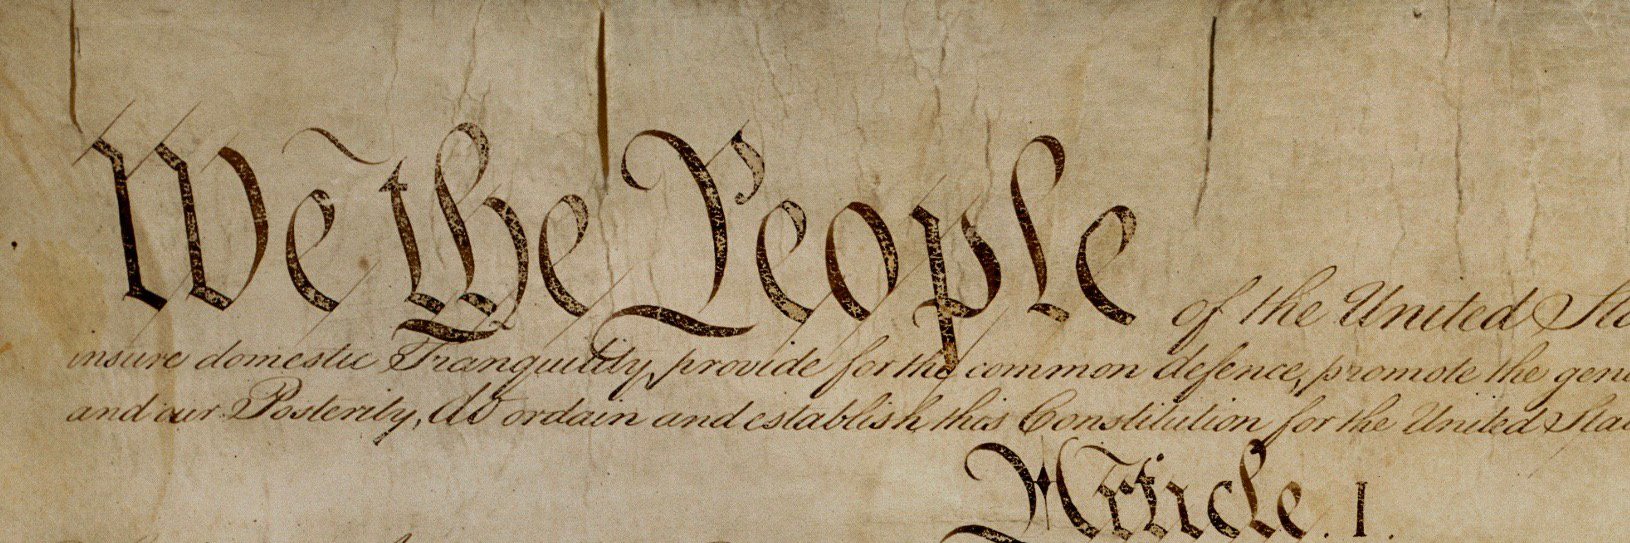 We the People of the United Sta
insure domestic Tranquility, provide for the common defence, promote the gene
and our Posterity, do ordain and establish this Constitution for the United Stat
Article. I.